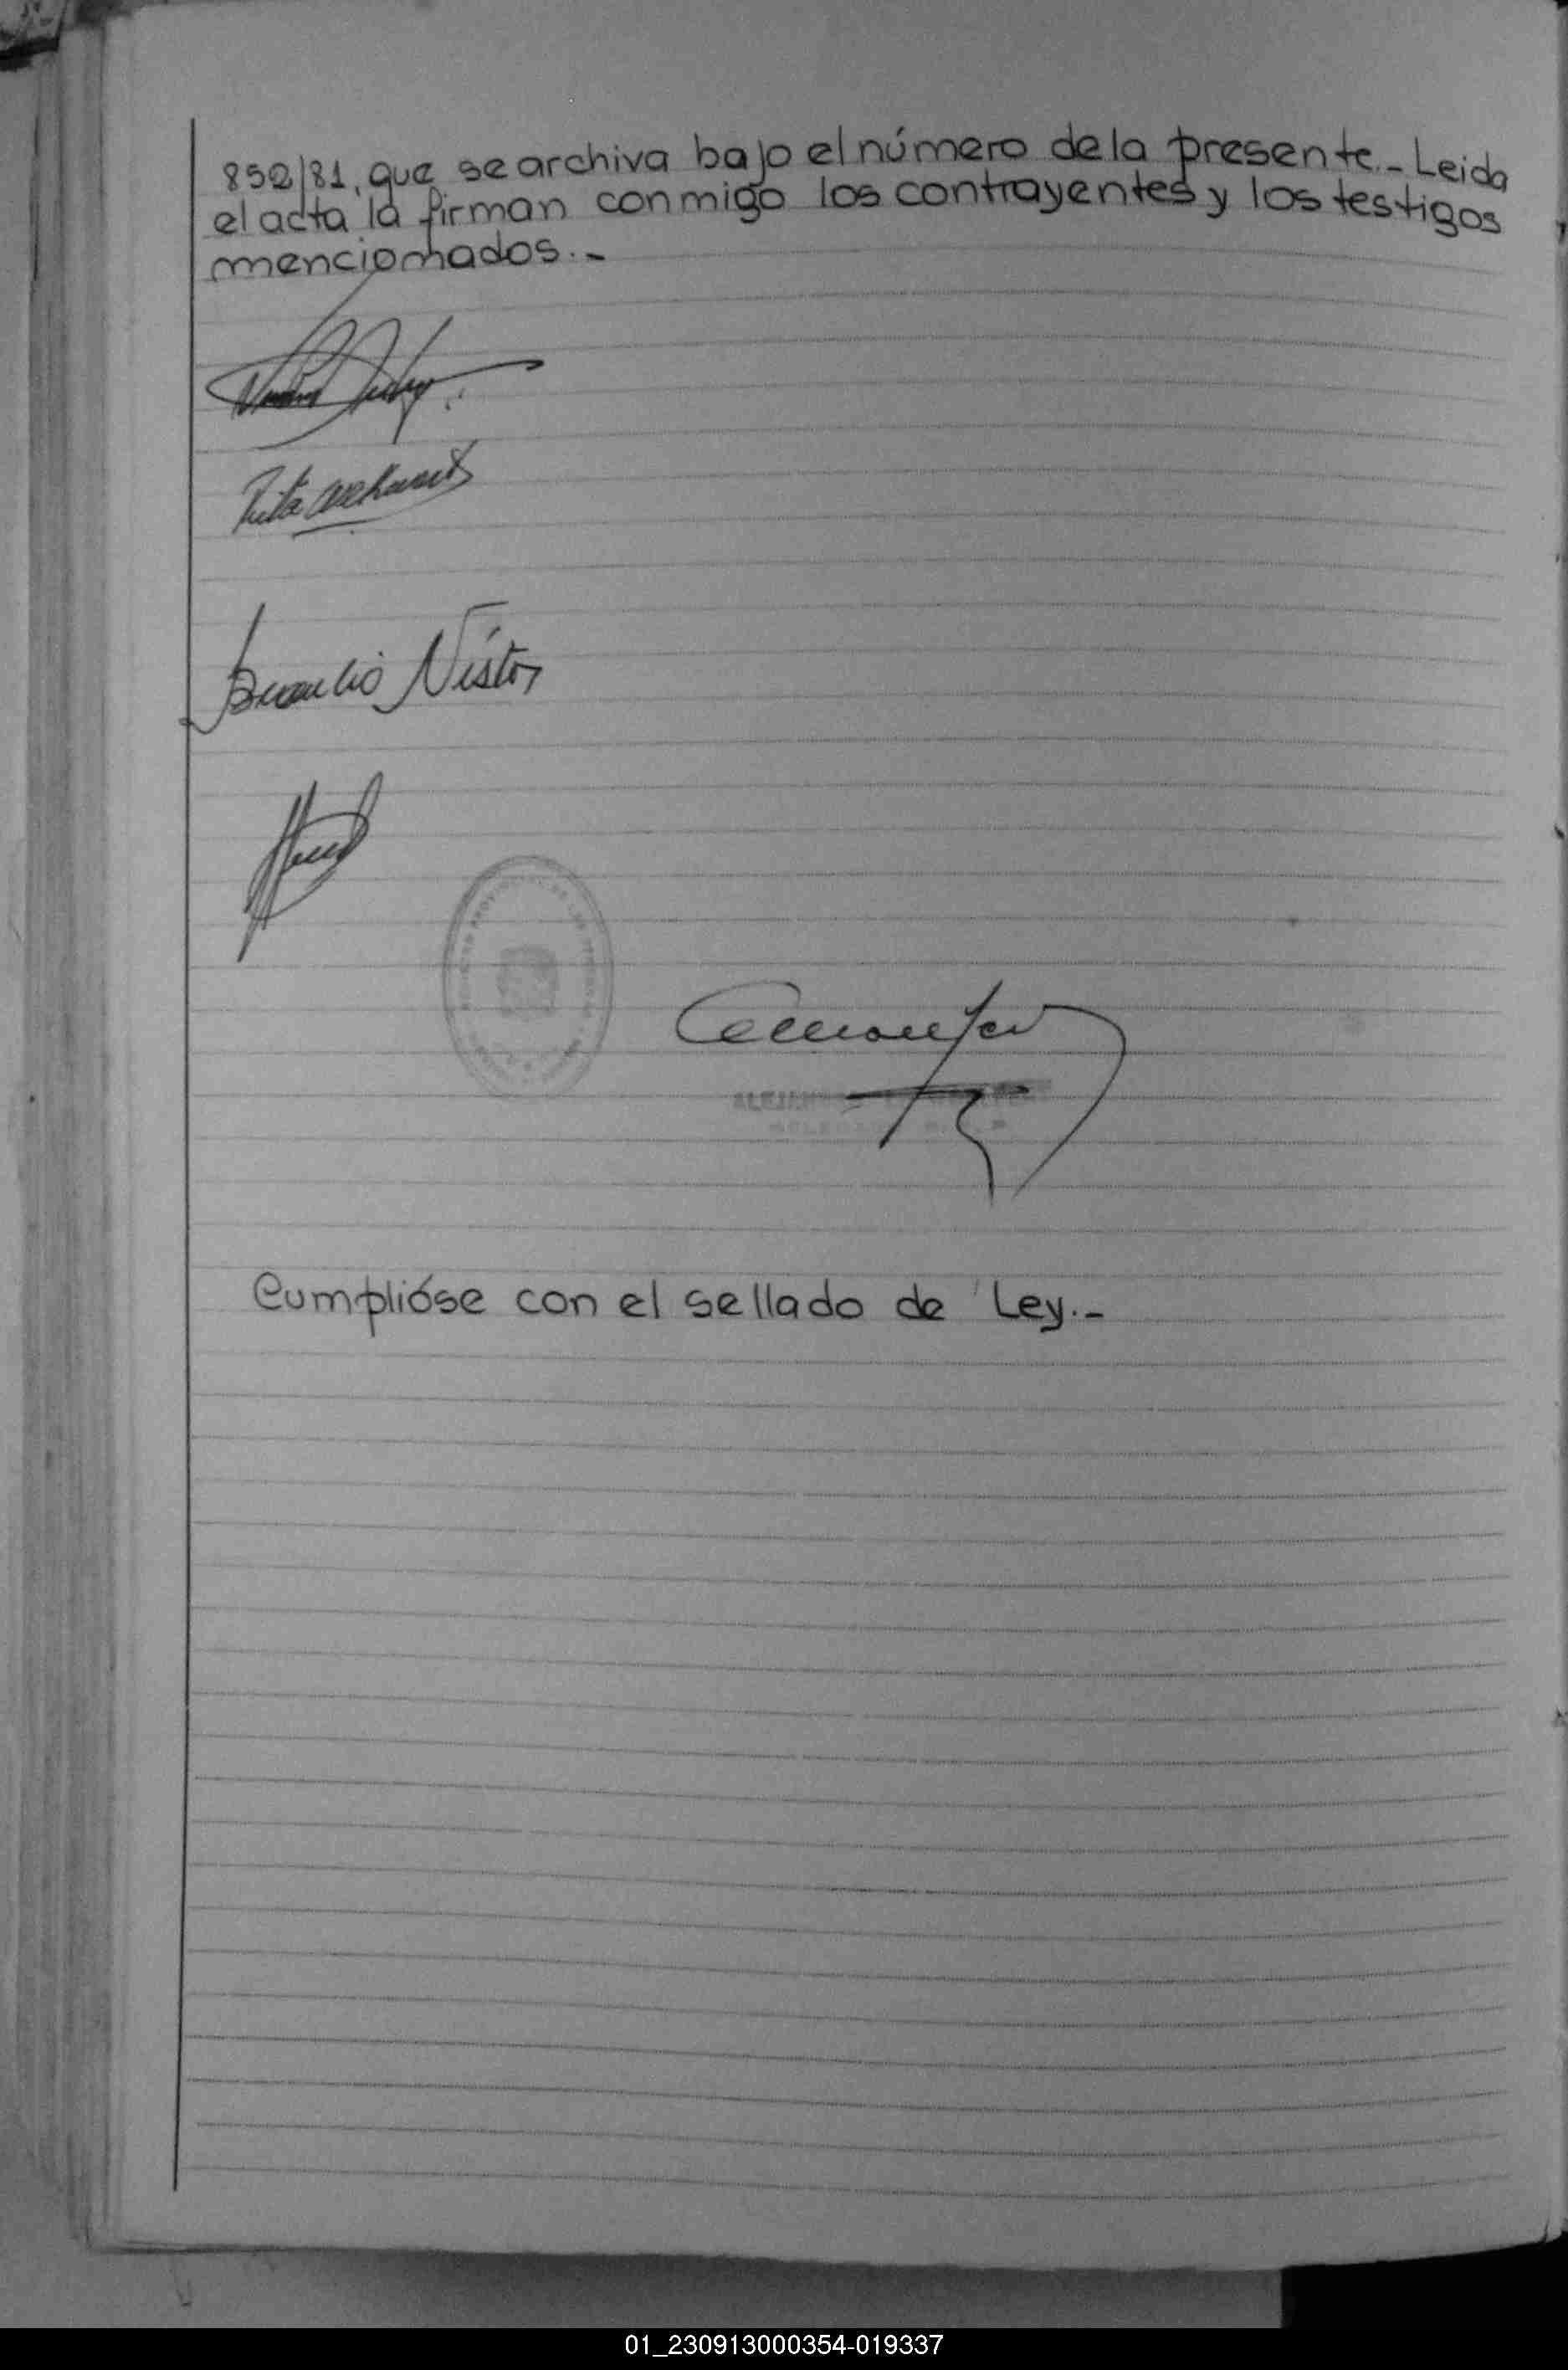 852/81, que se archiva bajo el número de la presente._ Leida
el acta la firman conmigo los contrayentes y los testigos
mencionados._
Rita
Braulio Néstor
Cumplióse con el sellado de Ley._
01_230913000354-019337